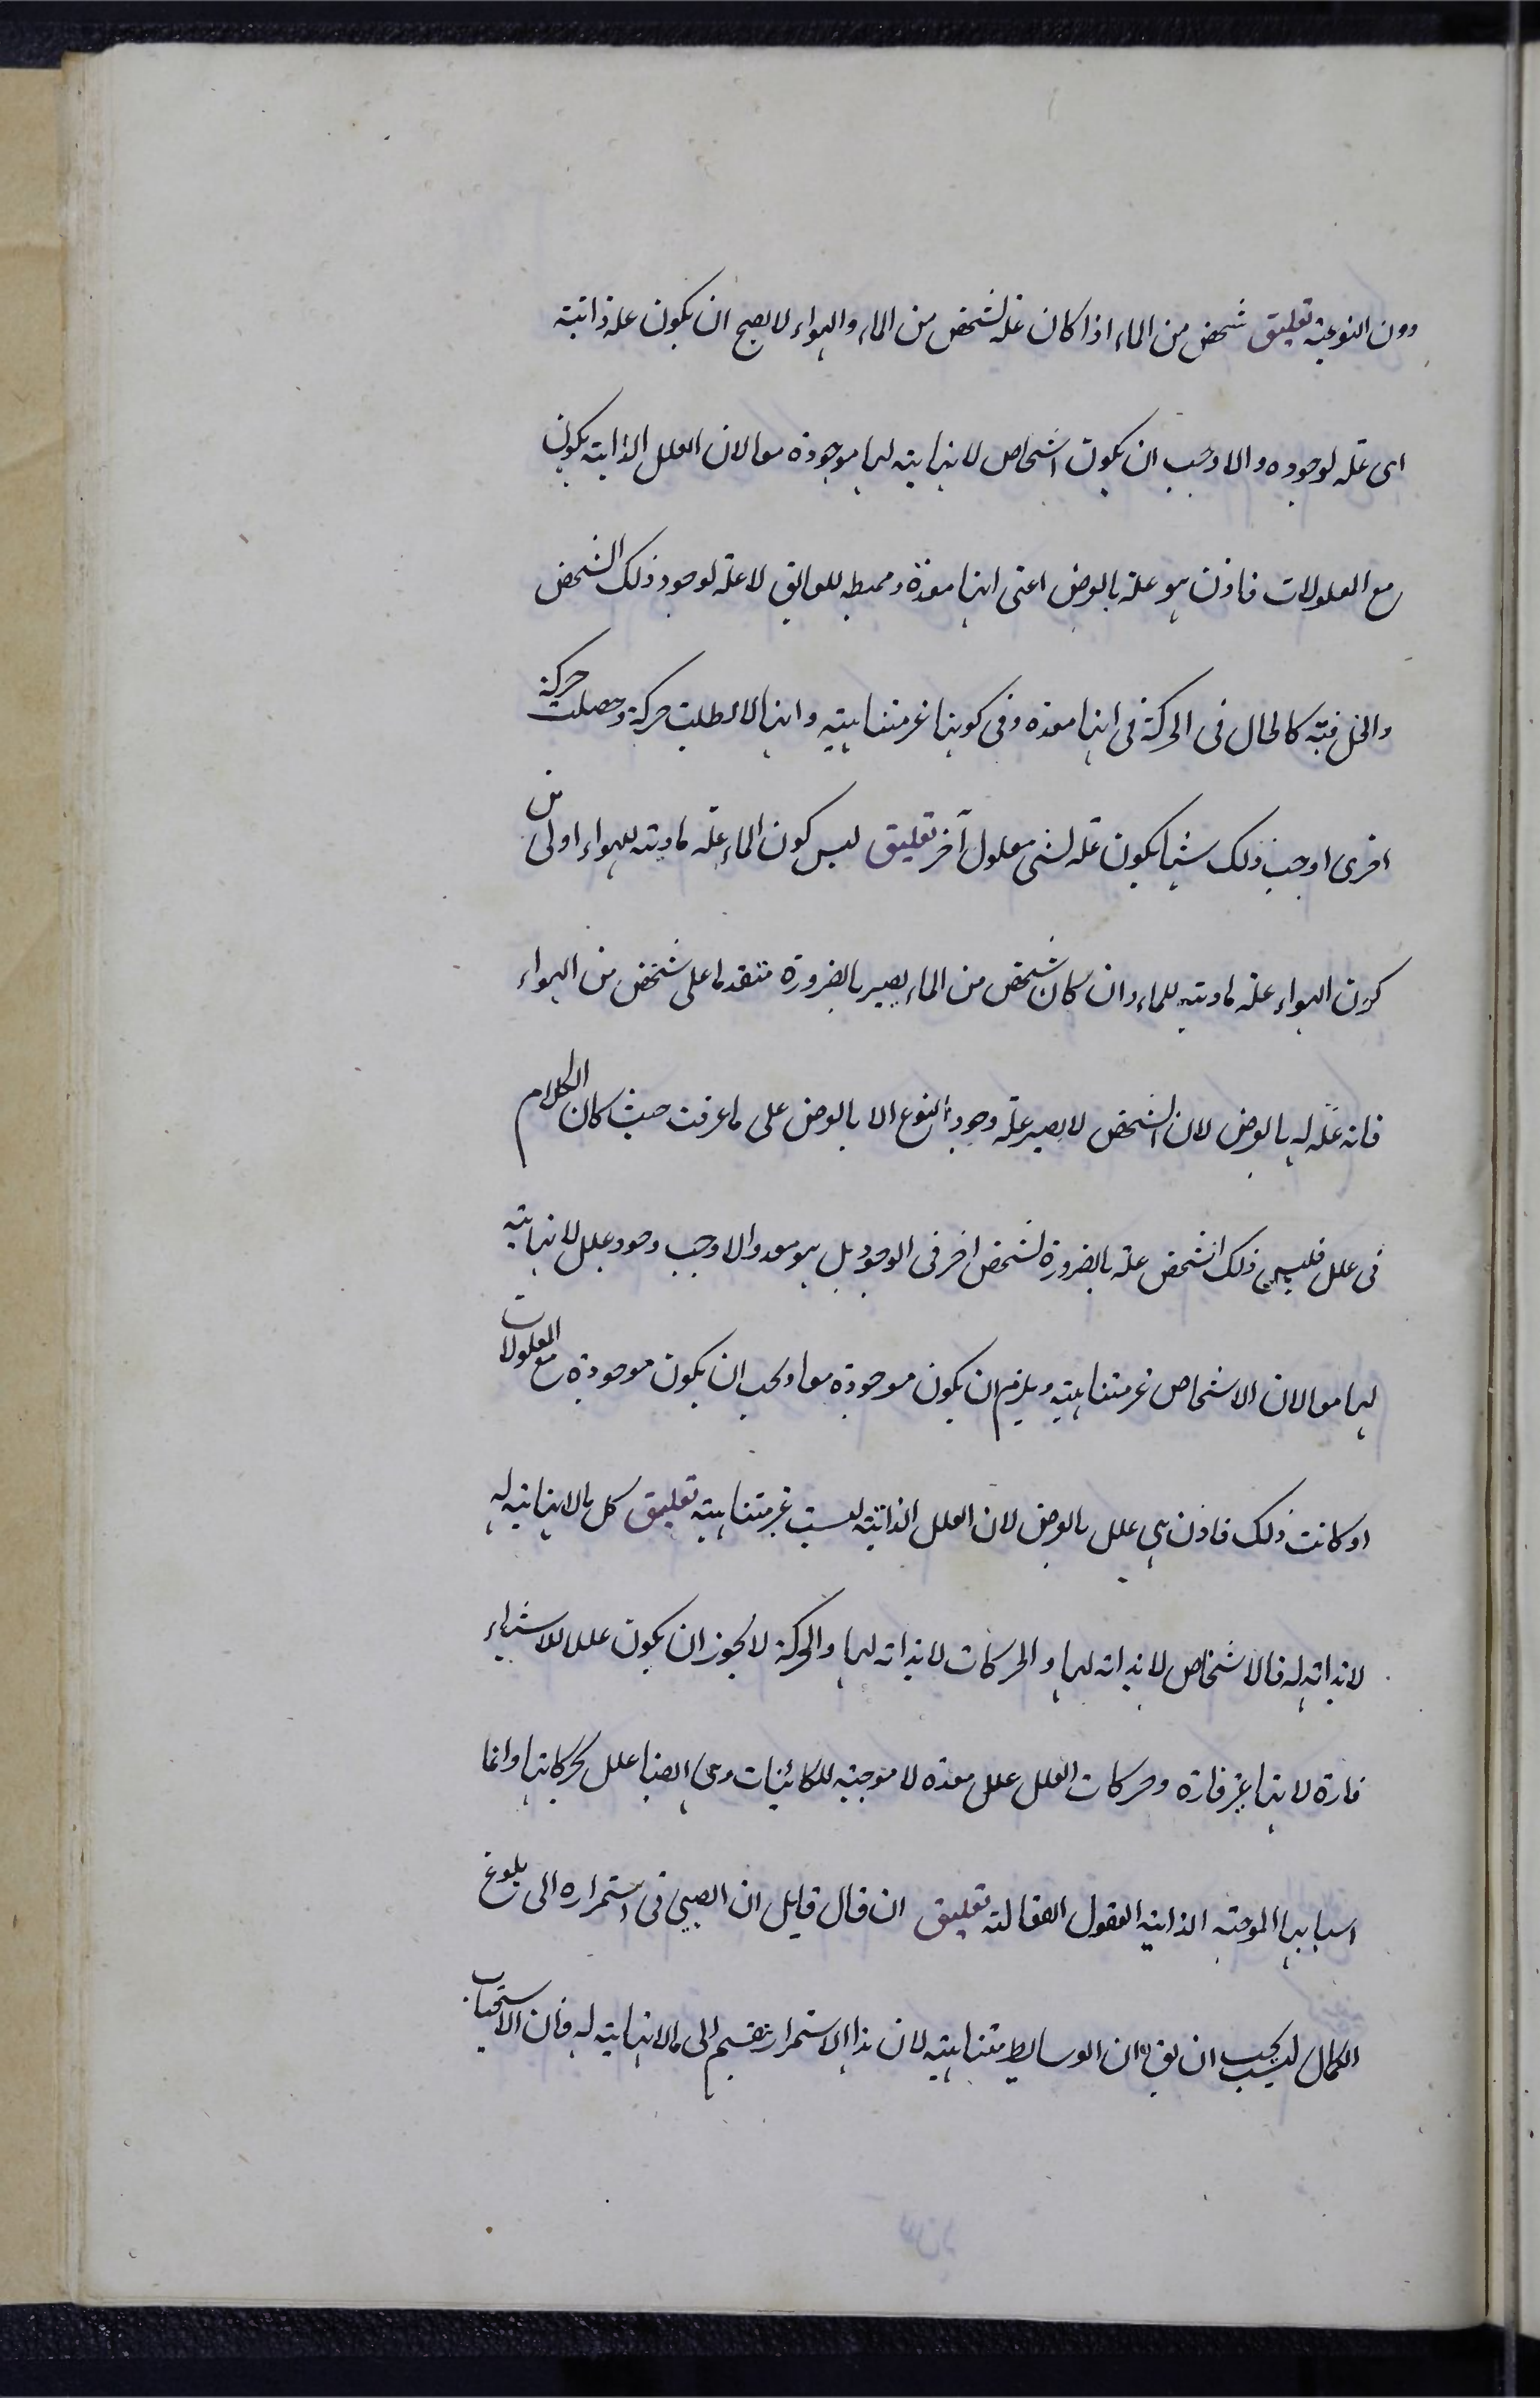 دون النوعية تعليق شخص من الماء اذا كان علة لشخص من الماء والهواء لا يصح ان يكون علة ذاتية
اى علة لوجوده والا وجب ان يكون اشخاص لا نهاية لها موجودة معا لان العلل الذاتية يكون
مع المعلولات فاذن هو علة بالعرض اعنى انها معدة ومميطه للعايق لا علة لوجود ذلك الشخص
والخل فيه كالحال فى الحركة فى انها معده وفى كونها غير متناهيه وانها لا بطلت حركة وحصلت حركة
اخرى اوجب ذلك شيئا يكون علة لشى معلول آخر تعليق ليس كون الماء علة مادية للهواء اولى من
كون الهواء علة مادية للماء وان كان شخص من الماء يصير بالضرورة متقدما على شخص من الهواء
فانه علة له بالعرض لان الشخص لا يصير علة وجود النوع الا بالعرض على ما عرفت حيث كان الكلام
فى علل فليس ذلك الشخص علة بالضرورة لشخص اخر فى الوجود بل هو معد والا وجب وجود علل لا نهاية
لها معا لان الاشخاص غير متناهية ويلزم ان يكون موجودة معا ويجب ان يكون موجودة مع المعلولات
او كانت ذلك فاذن هى علل بالعرض لان العلل الذاتية ليست غير متناهية تعليق كل ما لا نهاية له
لا بداية له فالاشخاص لا بداية لها والحركات لا بداية لها والحركة لا يجوز ان يكون عللا للاشياء
قارة لانها غير قارة وحركات العلل علل معدة لا موجبة للكائنات وهى ايضا علل لحركاتها وانما
اسبابها الموجبة الذاتية العقول الفعالة تعليق ان قال قايل ان الصبى فى استمراره الى بلوغ
الكمال ليس يجب ان يق ان الوسايط متناهية لان هذا الاستمرار ينقسم الى ما لا نهاية له فان الاسباب